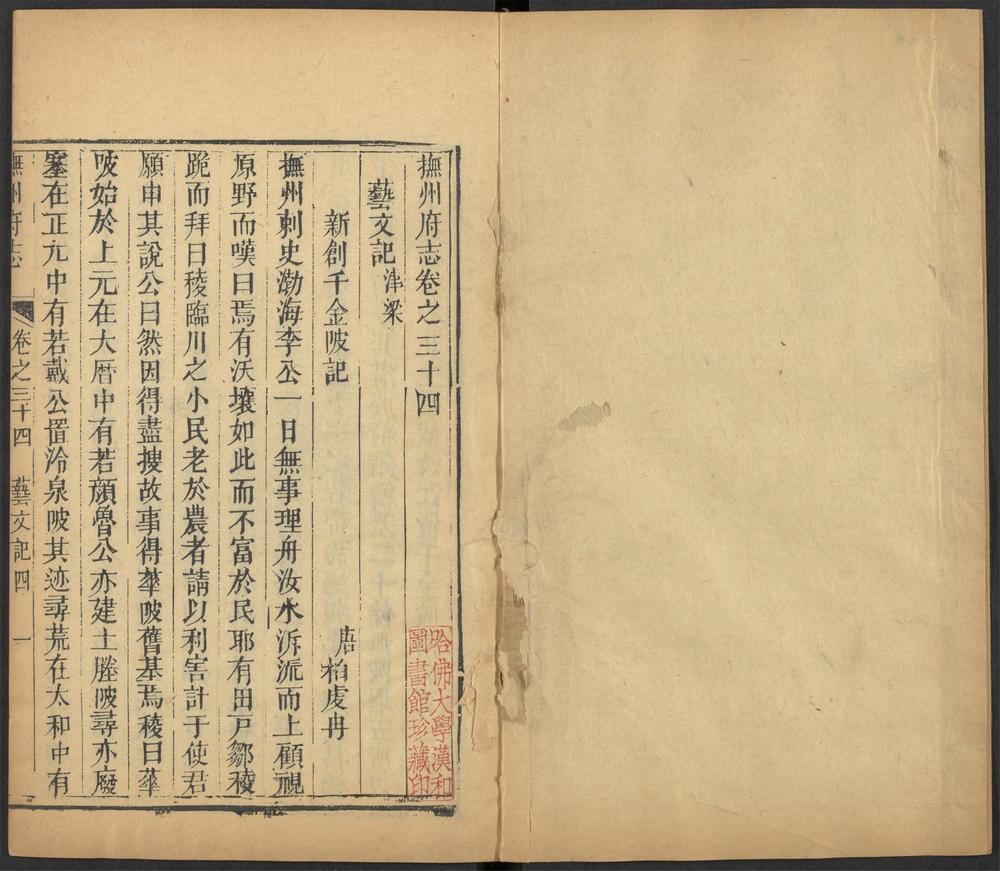 撫州府志卷之三十四
藝文記 津梁
新創千金陂記
唐 柏虔冉
撫州刺史渤海李公一日無事理舟汝水泝流而上顧視
原野而嘆曰焉有沃壤如此而不富於民耶有田戸鄒稜
跪而拜曰稜臨川之小民老於農者請以利害計于使君
願申其說公曰然因得盡搜故事得華陂舊基焉稜曰華
陂始於上元在大曆中有若顔魯公亦建土塍陂尋亦廢
塞在正元中有若戴公置冷泉陂其迹尋荒在太和中有
撫州府志
卷之三十四 藝文記四 一
哈佛大學漢和
圖書館珍藏印